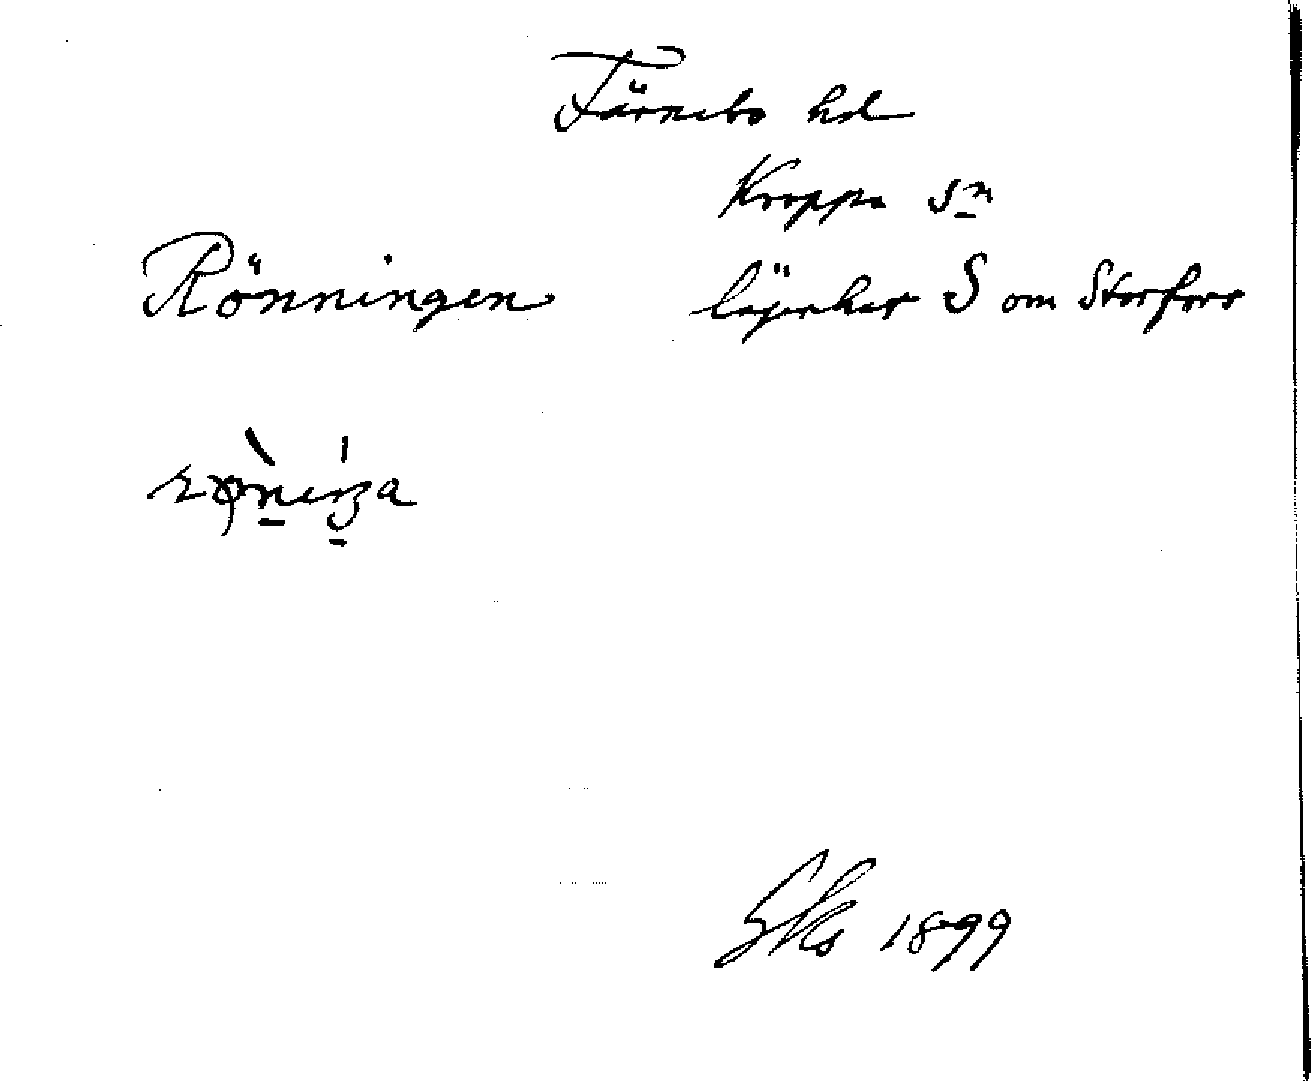 Färnebo hd
Kroppa sn
Rönningen lägenhet S om Storfors
1899